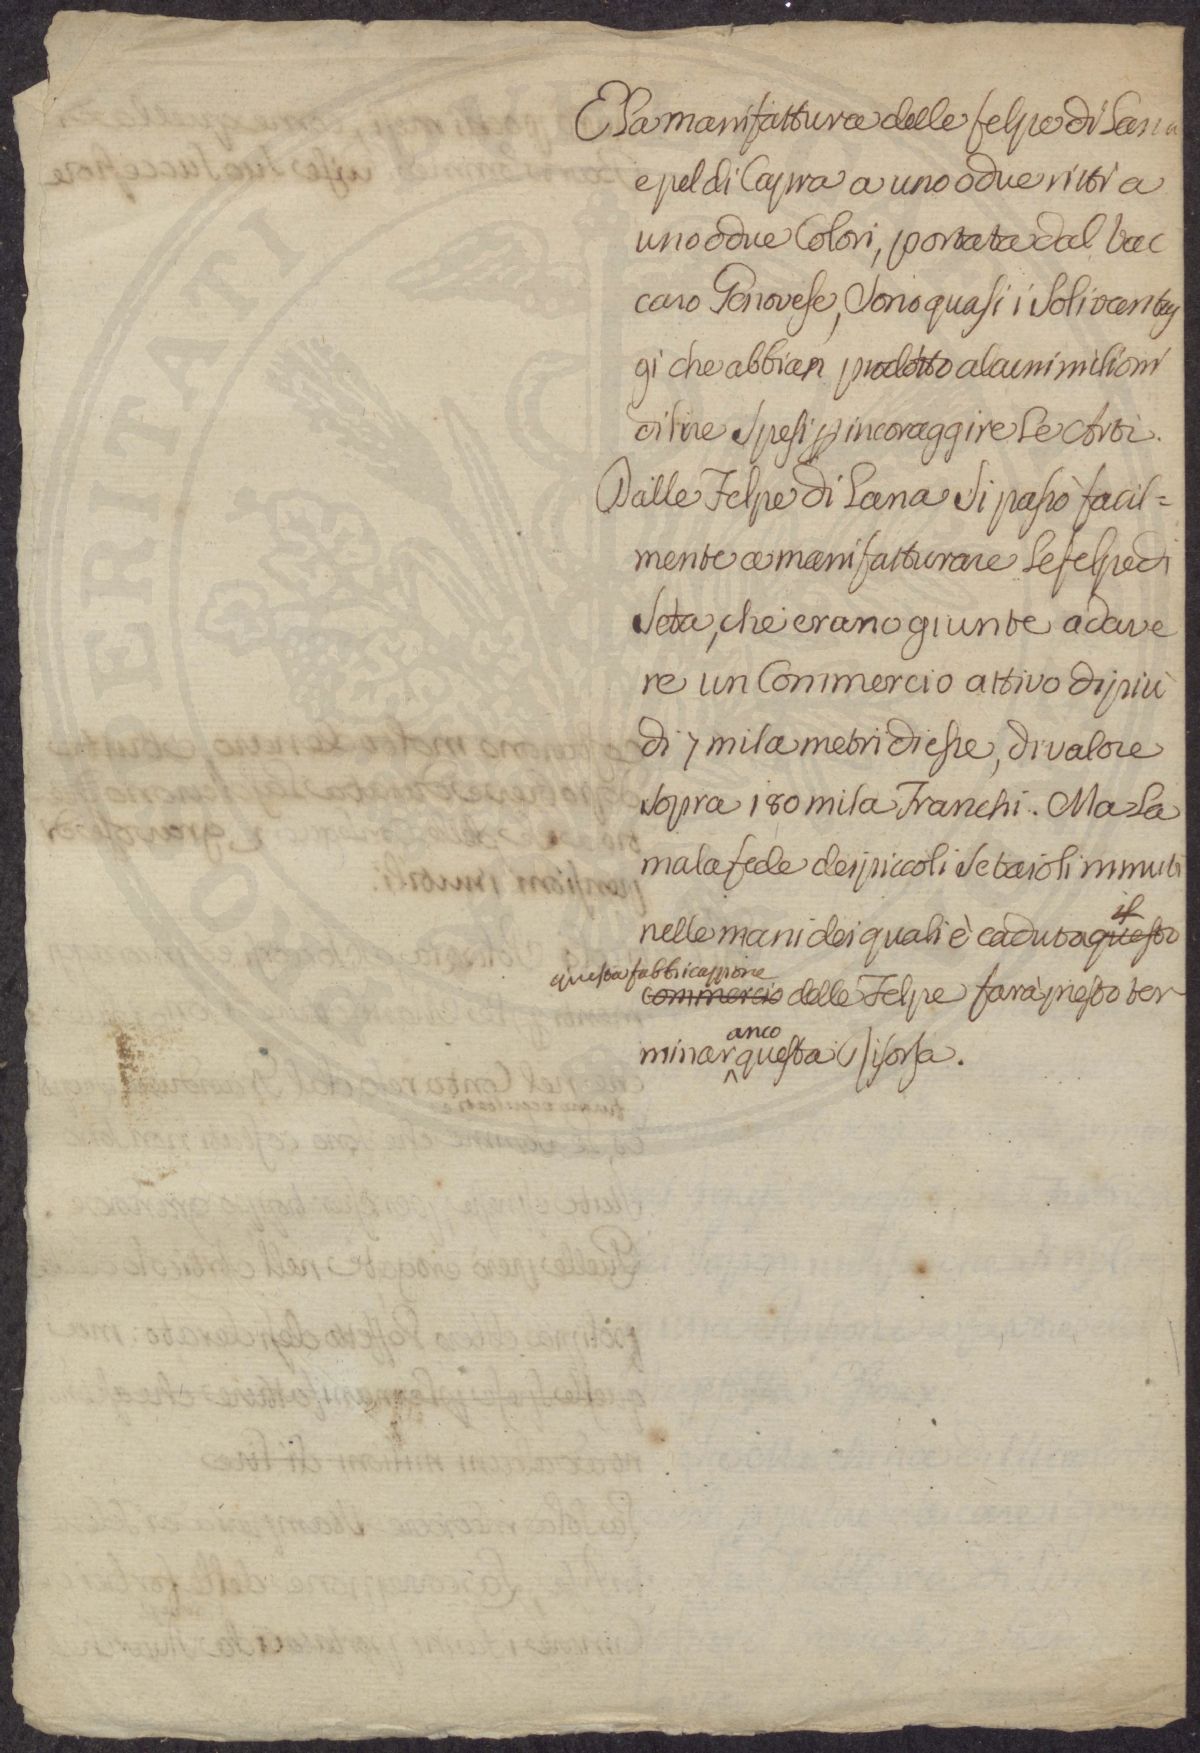 E la manifattura delle felpe di Lana
e pel di Capra a uno o due ritti a
uno o due Colori, portata dal Vac
caro Genovese, sono quasi i soli vantag
gi che abbian prodotto alcuni milioni
di lire spesi p incoraggire le Arti.
Dalle Felpe di Lana si passò facil=
mente a manifatturare le felpe di
Seta, che erano giunte ad ave
re un Commercio attivo di più
di 7 mila metri di esse, di valore
sopra 180 mila Franchi. Ma la
mala fede dei piccoli Setaioli minuti
nelle mani dei quali è caduta questo il
questa fabbricazione
commercio delle Felpe farà presto ter
anco
minar questa risorsa.